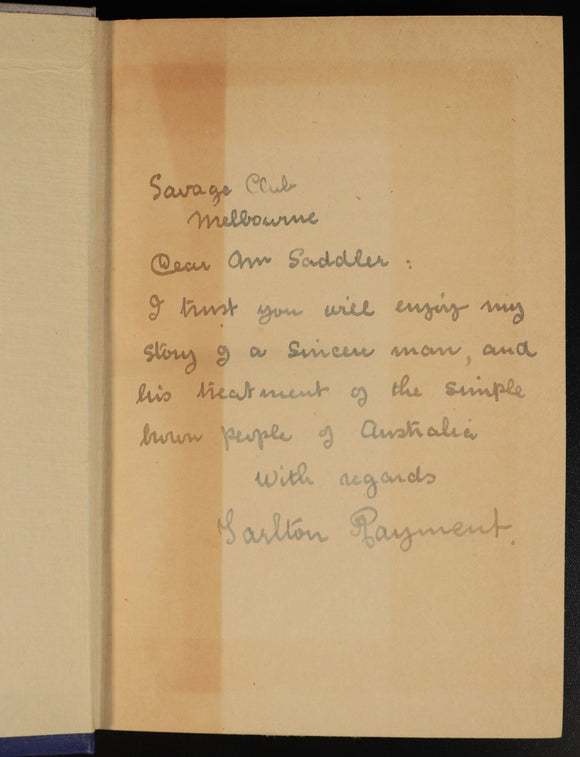 Savage Club
Melbourne
Dear Mr Saddler :
I trust you will enjoy my
story of a sincere man, and
his treatment of the simple
brown people of Australia
With regards
Tarlton Rayment.